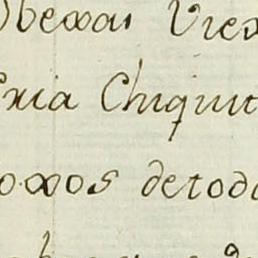 Obexas Viex
exia Chiquit
oxos detodo